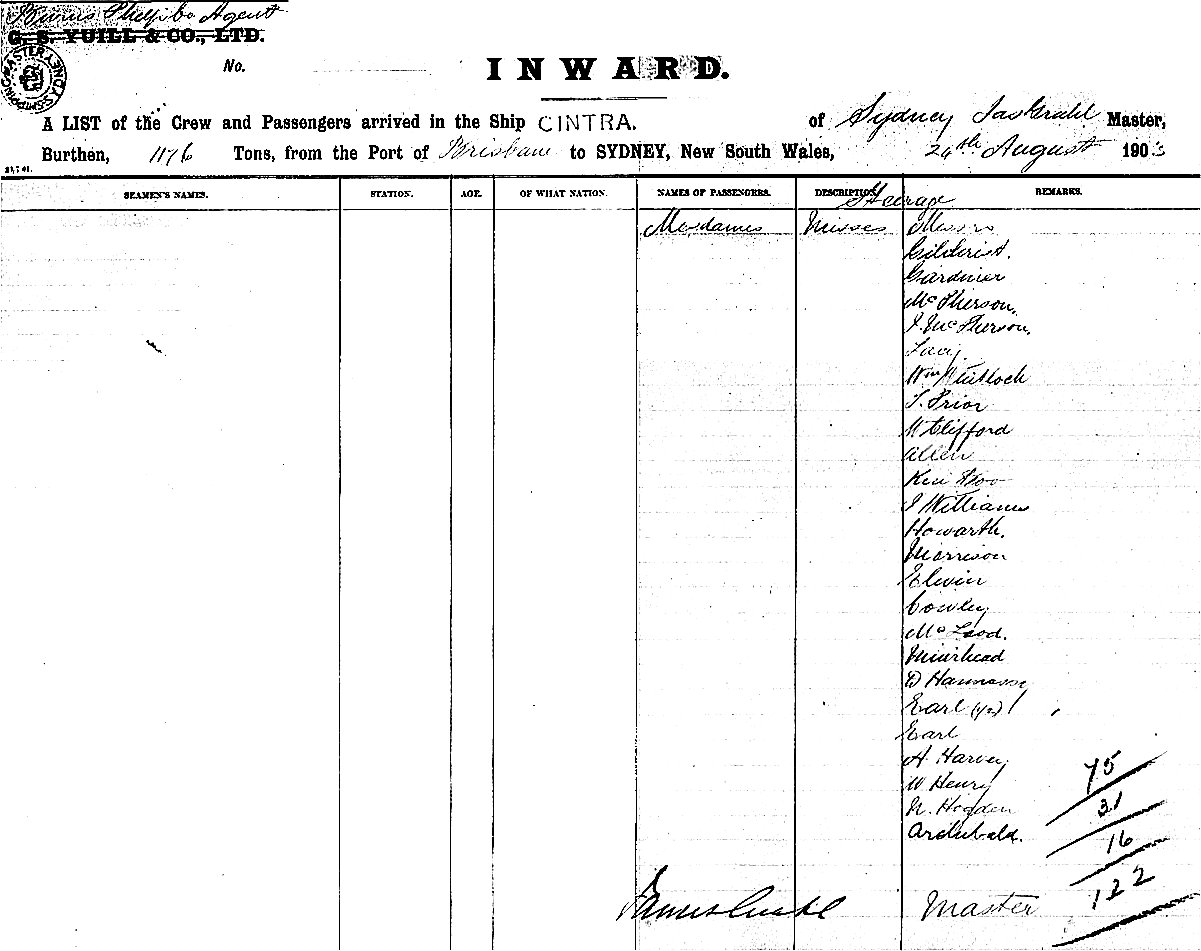 Burns Philp & Co Agent
G. S. YUILL & CO., LTD.
No. INWARD.
A LIST of the Crew and Passengers arrived in the Ship CINTRA. of Sydney Jas Grahl Master,
Burthen, 1176 Tons, from the Port of Brisbane to SYDNEY, New South Wales, 24th August 1903
SEAMEN'S NAMES. STATION. AGE. OF WHAT NATION. NAMES OF PASSENGERS. DESCRIPTION REMARKS.
Steerage
Mesdames Misses Messrs
Gilchrist.
Gardiner
McPherson.
J. McPherson.
Lacy
Wm Whitlock
T. Prior
W Clifford
Allen
J Williams
Howarth.
Morrison
Elwin
Cowley
McLeod.
Muirhead
D
Earl (1/2) 1
Earl
A Harvey
W Henry
N. Hogden
Archibald.
75
31
16
122
James Grahl Master